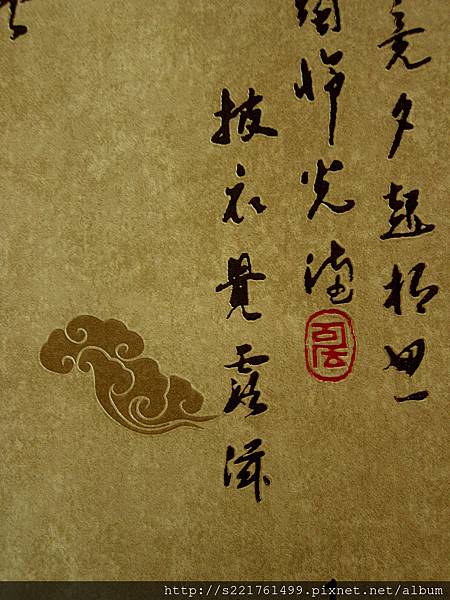 竟夕起相思
怜光滿
披衣覺露滋
http://s221761499.pixnet.net/album